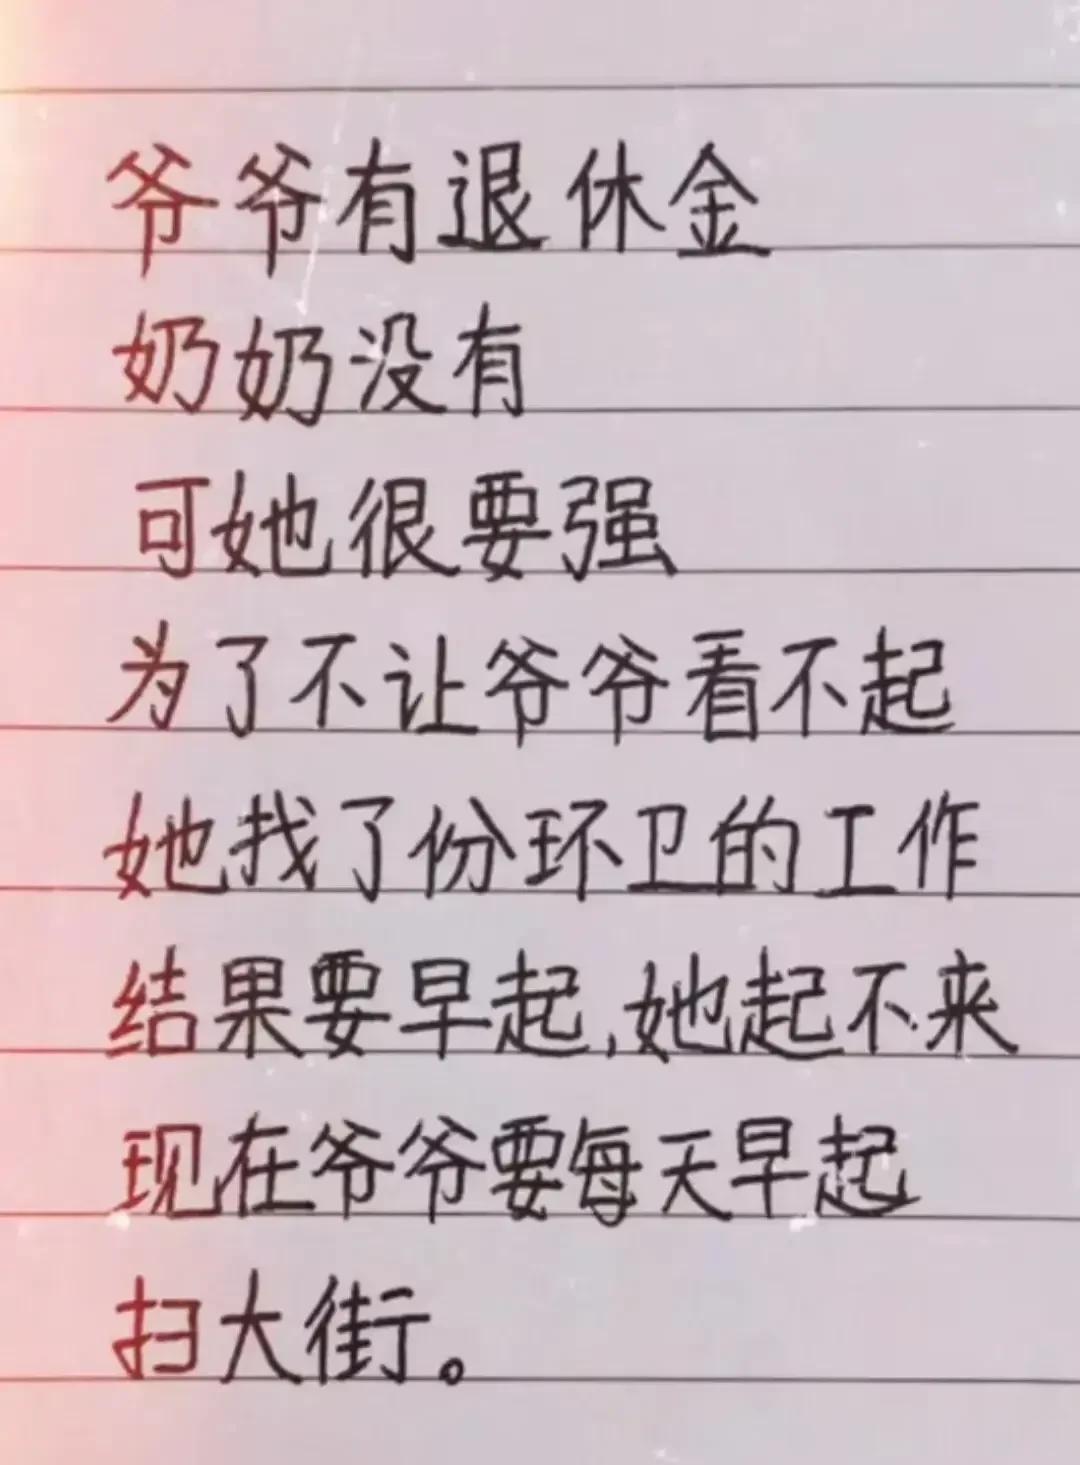 爷爷有退休金
奶奶没有
可她很要强
为了不让爷爷看不起
她找了份环卫的工作
结果要早起,她起不来
现在爷爷要每天早起
扫大街。